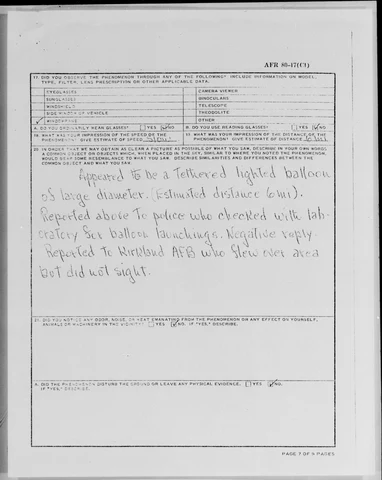 AFR 80-17(C1)
17. DID YOU OBSERVE THE PHENOMENON THROUGH ANY OF THE FOLLOWING? INCLUDE INFORMATION ON MODEL, TYPE, FILTER, LENS PRESCRIPTION OR OTHER APPLICABLE DATA.
EYEGLASSES CAMERA VIEWER
SUNGLASSES BINOCULARS
WINDSHIELD TELESCOPE
SIDE WINDOW OF VEHICLE THEODOLITE
WINDOWPANE OTHER
A. DO YOU ORDINARILY WEAR GLASSES? YES NO B. DO YOU USE READING GLASSES? YES NO
18. WHAT WAS YOUR IMPRESSION OF THE SPEED OF THE PHENOMENON? GIVE ESTIMATE OF SPEED
19. WHAT WAS YOUR IMPRESSION OF THE DISTANCE OF THE PHENOMENON? GIVE ESTIMATE OF DISTANCE 6 mi
20. IN ORDER THAT WE MAY OBTAIN AS CLEAR A PICTURE AS POSSIBLE OF WHAT YOU SAW, DESCRIBE IN YOUR OWN WORDS
A COMMON OBJECT OR OBJECTS WHICH, WHEN PLACED IN THE SKY, SIMILAR TO WHERE YOU NOTED THE PHENOMENON,
WOULD BEAR SOME RESEMBLANCE TO WHAT YOU SAW. DESCRIBE SIMILARITIES AND DIFFERENCES BETWEEN THE
COMMON OBJECT AND WHAT YOU SAW.
Appeared to be a tethered lighted balloon
of large diameter. (Estimated distance 6 mi).
Reported above to police who checked with lab-
oratory for balloon launchings. Negative reply.
Reported to Kirkland AFB who flew over area
but did not sight.
21. DID YOU NOTICE ANY ODOR, NOISE, OR HEAT EMANATING FROM THE PHENOMENON OR ANY EFFECT ON YOURSELF,
ANIMALS OR MACHINERY IN THE VICINITY? YES NO. IF "YES," DESCRIBE.
A. DID THE PHENOMENON DISTURB THE GROUND OR LEAVE ANY PHYSICAL EVIDENCE. YES NO.
IF "YES," DESCRIBE.
PAGE 7 OF 9 PAGES